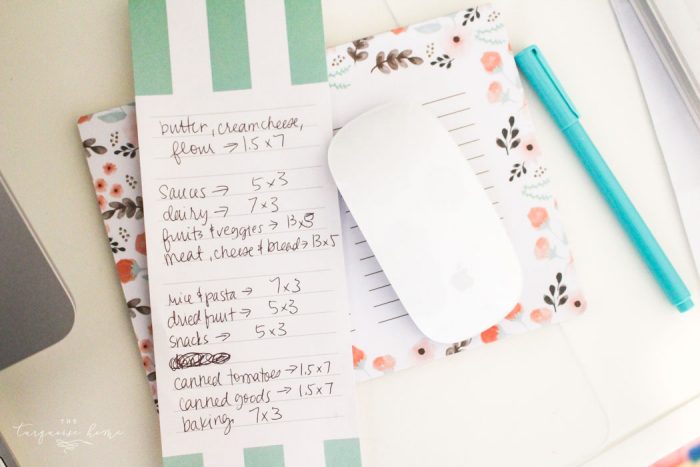 butter, cream cheese,
flour → 1.5 x 7
sauces → 5 x 3
dairy → 7 x 3
fruits & veggies → 13 x 5
meat, cheese & bread → 13 x 5
rice & pasta → 7 x 3
dried fruit → 5 x 3
snacks → 5 x 3
canned tomatoes → 1.5 x 7
canned goods → 1.5 x 7
baking, 7 x 3
THE
turquoise home